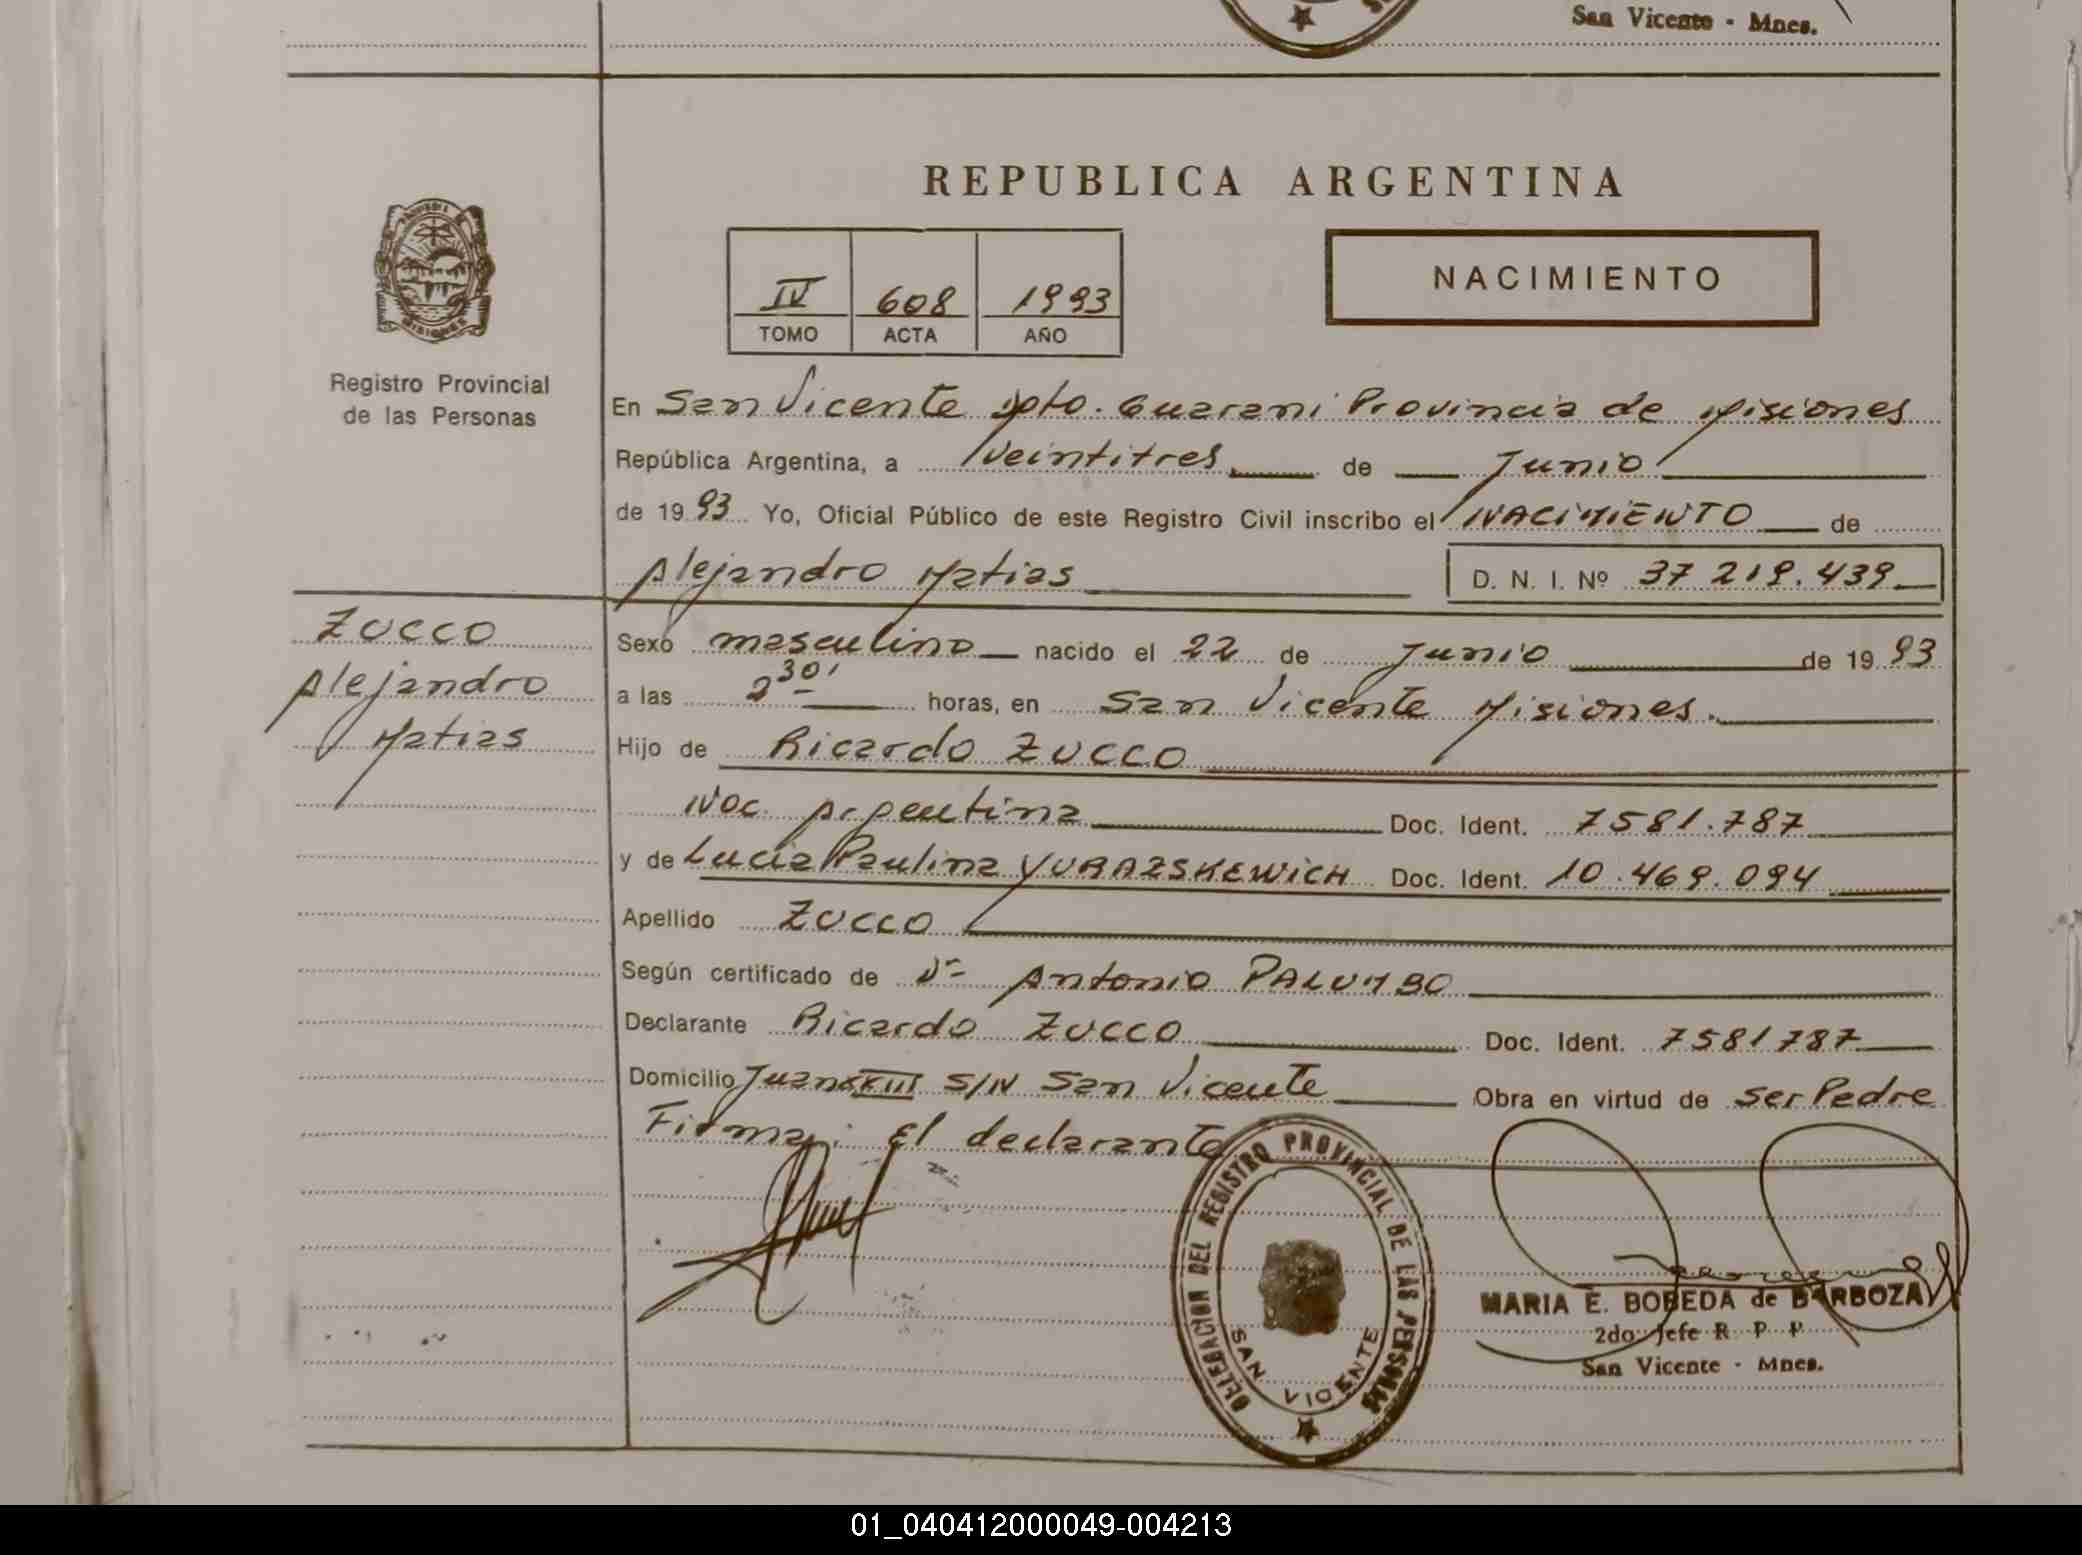 San Vicente - Mnes.
REPUBLICA ARGENTINA
IV 608 1993
TOMO ACTA AÑO
NACIMIENTO
Registro Provincial
de las Personas
En San Vicente Dpto. Guarani Provincia de Misiones
República Argentina, a Veintitres de Junio
de 1993 Yo, Oficial Público de este Registro Civil inscribo el NACIMIENTO de
Alejandro Matias D. N. I. Nº 37 219.439
ZUCCO
Alejandro
Matias
Sexo masculino nacido el 22 de Junio de 1993
a las 2 30' horas, en San Vicente Misiones.
Hijo de Ricardo ZUCCO
Nac. Argentina Doc. Ident. 7581.787
y de Lucia Paulina YURAZSKEWICH Doc. Ident. 10.469.094
Apellido ZUCCO
Según certificado de Dr Antonio PALUMBO
Declarante Ricardo ZUCCO Doc. Ident. 7581787
Domicilio Juan XXIII S/N San Vicente Obra en virtud de ser Padre
Firma: El declarante
DELEGACION DEL REGISTRO PROVINCIAL DE LAS PERSONAS
SAN VICENTE
MARIA E. BOBEDA de BARBOZA
2do. Jefe R. P. P.
San Vicente - Mnes.
01_040412000049-004213